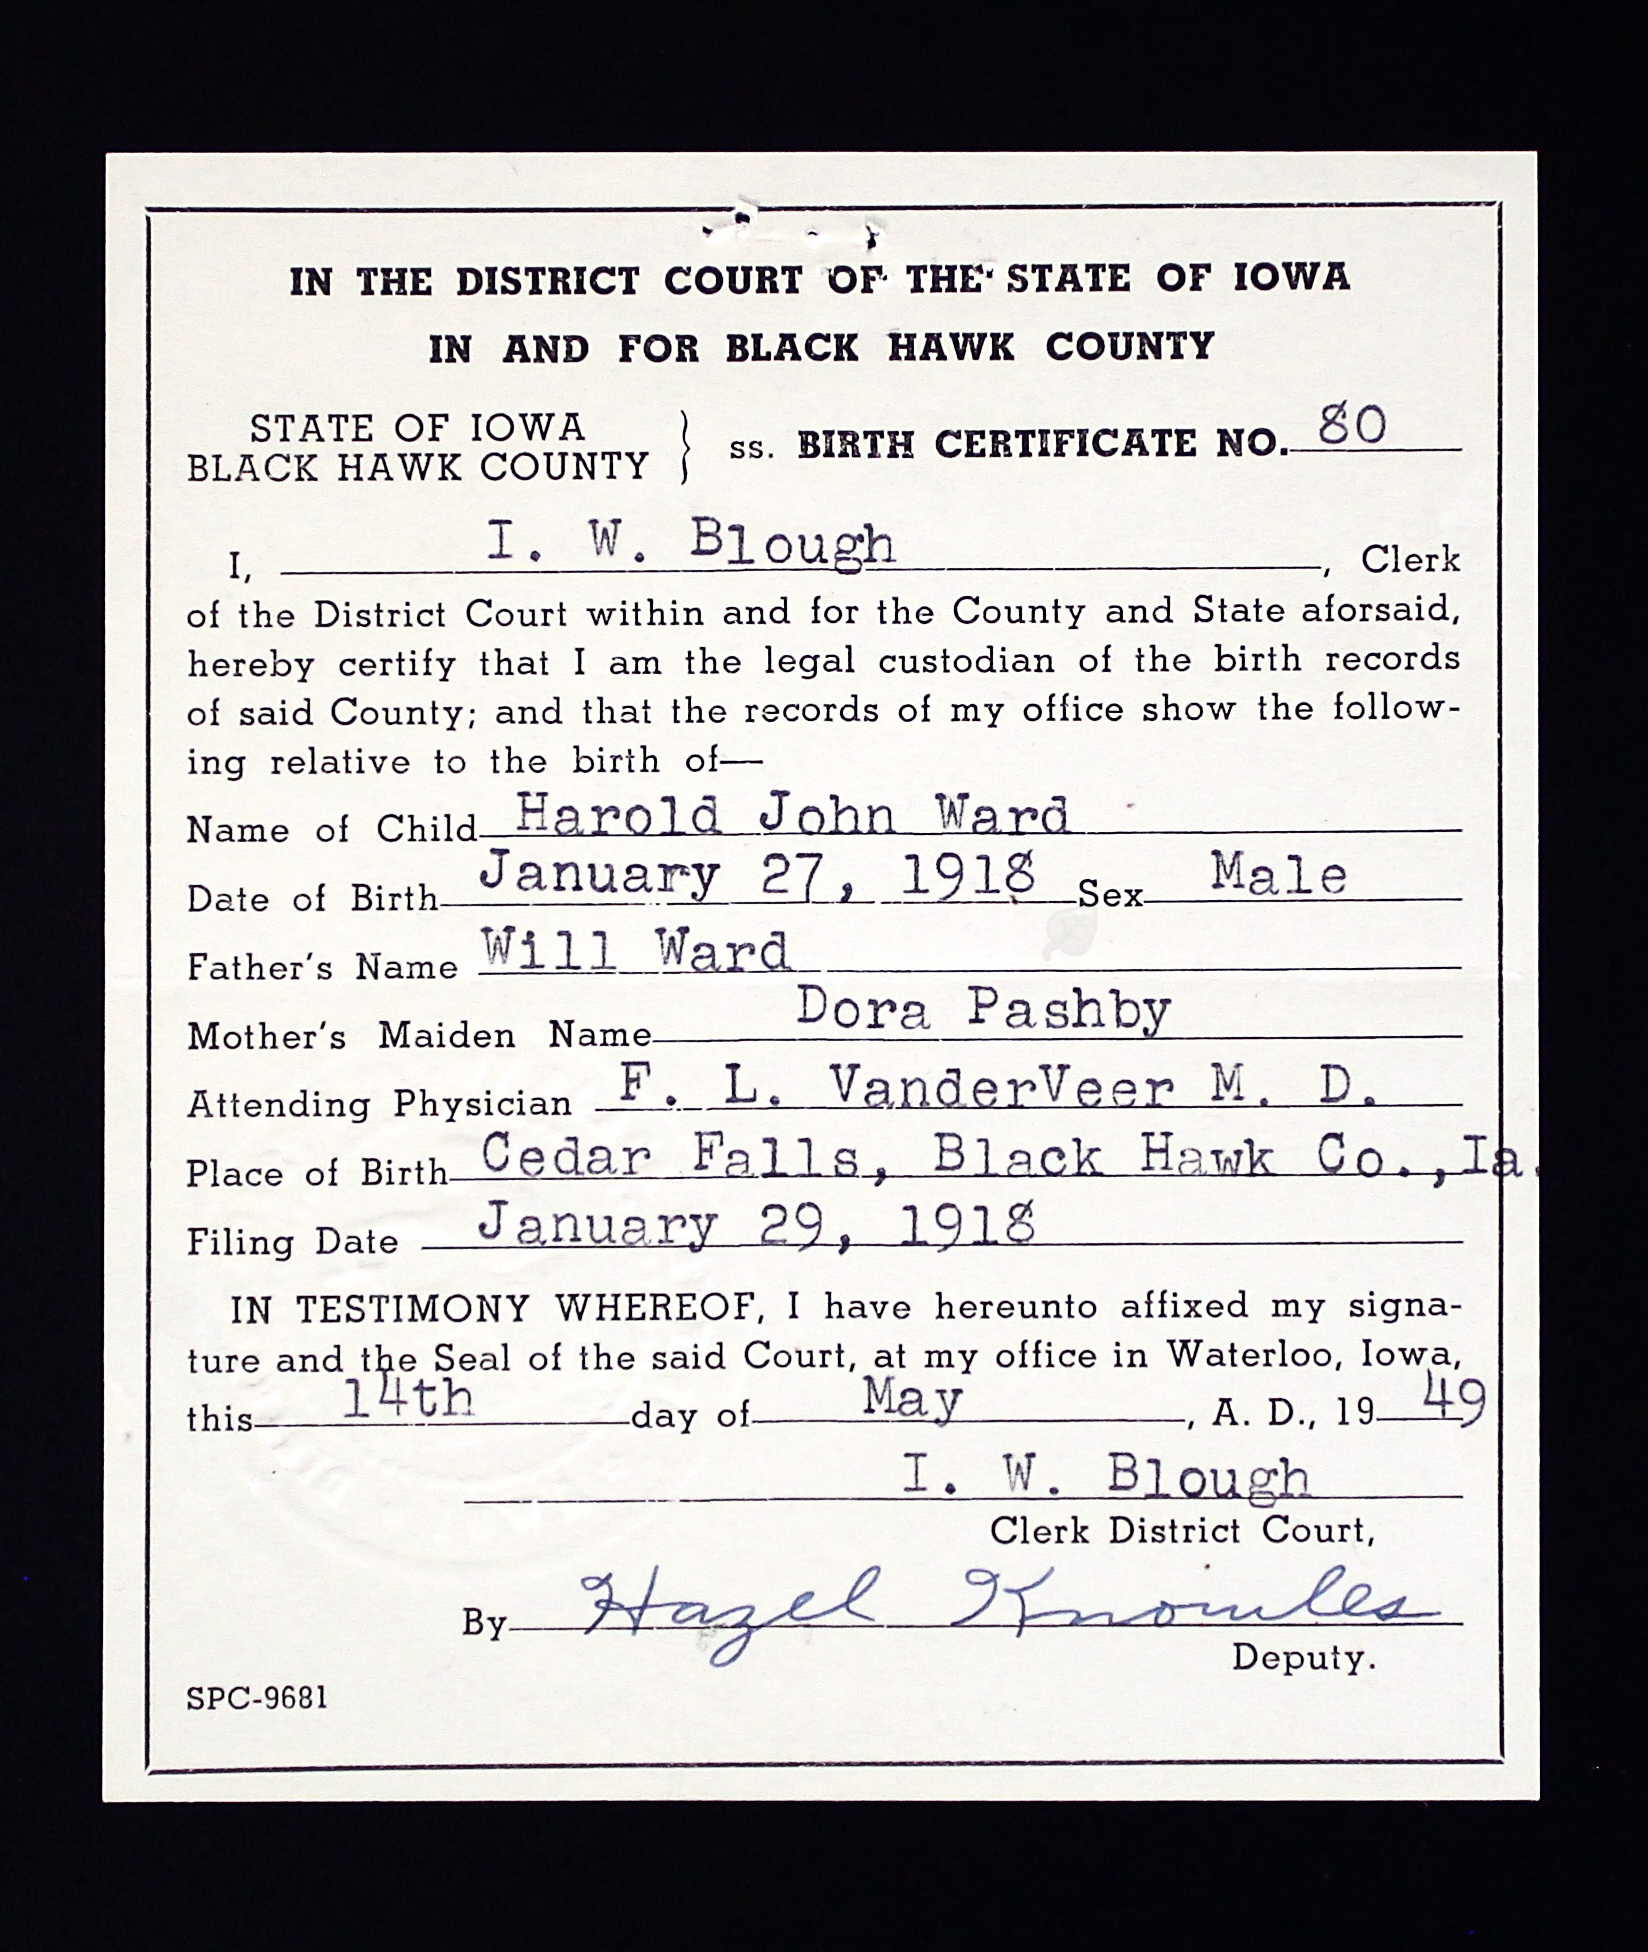 IN THE DISTRICT COURT OF THE STATE OF IOWA
IN AND FOR BLACK HAWK COUNTY
STATE OF IOWA
BLACK HAWK COUNTY } ss. BIRTH CERTIFICATE NO. 80
I, I. W. Blough, Clerk
of the District Court within and for the County and State aforsaid,
hereby certify that I am the legal custodian of the birth records
of said County; and that the records of my office show the follow-
ing relative to the birth of—
Name of Child Harold John Ward
Date of Birth January 27, 1918 Sex Male
Father's Name Will Ward
Mother's Maiden Name Dora Pashby
Attending Physician F. L. VanderVeer M. D.
Place of Birth Cedar Falls, Black Hawk Co., Ia.
Filing Date January 29, 1918
IN TESTIMONY WHEREOF, I have hereunto affixed my signa-
ture and the Seal of the said Court, at my office in Waterloo, Iowa,
this 14th day of May, A. D., 19 49
I. W. Blough
Clerk District Court,
By Hazel Knowles
Deputy.
SPC-9681